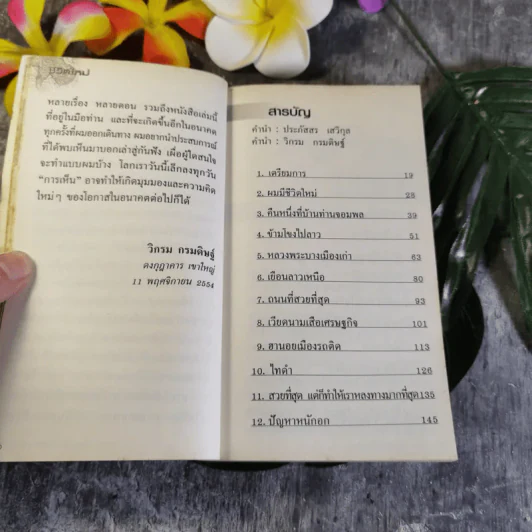 หลายเรื่อง หลายตอน รวมถึงหนังสือเล่มนี้
ที่อยู่ในมือท่าน และที่จะเกิดขึ้นอีกในอนาคต
ทุกครั้งที่ผมออกเดินทาง ผมอยากนำประสบการณ์
ที่ได้พบเห็นมาบอกเล่าสู่กันฟัง เผื่อผู้ใดสนใจ
จะทำแบบผมบ้าง โลกเราวันนี้เล็กลงทุกวัน
"การเห็น" อาจทำให้เกิดมุมมองและความคิด
ใหม่ๆ ของโอกาสในอนาคตต่อไปก็ได้
วิกรม กรมดิษฐ์
ดงกุฎาคาร เขาใหญ่
11 พฤศจิกายน 2554
สารบัญ
คำนำ : ประภัสสร เสวิกุล
คำนำ : วิกรม กรมดิษฐ์
1. เตรียมการ 19
2. ผมมีชีวิตใหม่ 28
3. คืนหนึ่งที่บ้านท่านจอมพล 39
4. ข้ามโขงไปลาว 51
5. หลวงพระบางเมืองเก่า 63
6. เยือนลาวเหนือ 80
7. ถนนที่สวยที่สุด 93
8. เวียดนามเสือเศรษฐกิจ 101
9. ฮานอยเมืองรถติด 113
10. ไทดำ 126
11. สวยที่สุด แต่ก็ทำให้เราหลงทางมากที่สุด 135
12. ปัญหาหนักอก 145